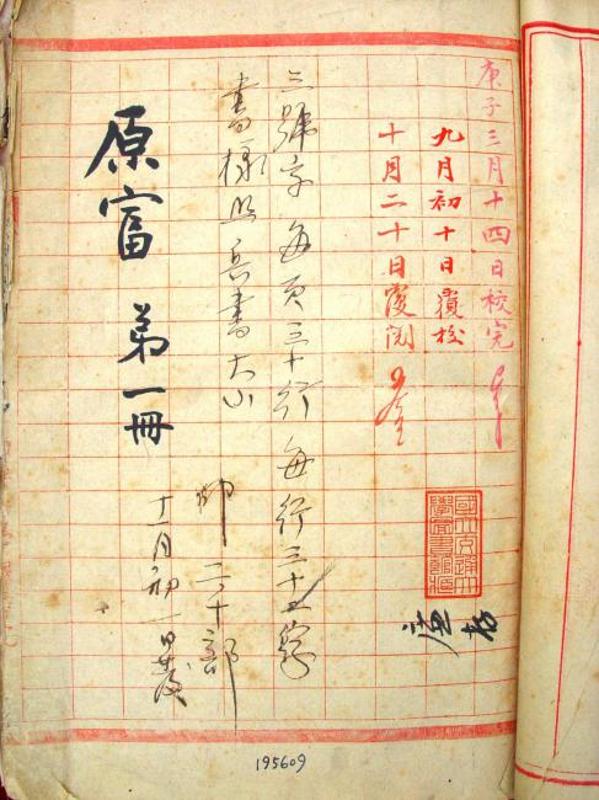 庚子三月十四日校完
九月初十日覆校
十月二十日覆閱
三號字每頁三十行每行三十五字
書樣照兵書大小
印二千部
十一月初一日發
原富 第一冊
國立交通大學圖書館藏
195609